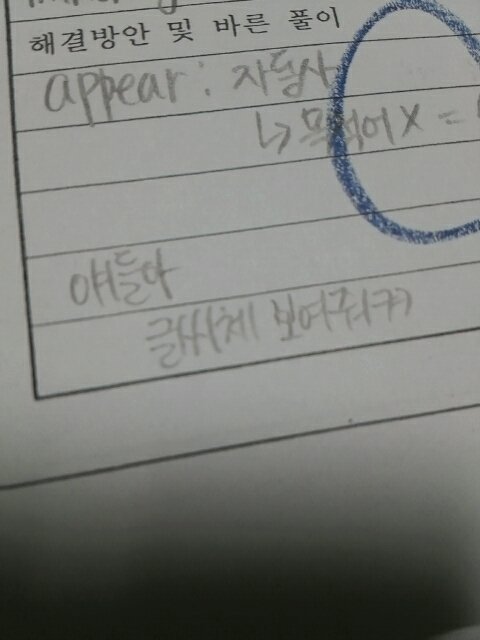 해결방안 및 바른 풀이
appear : 자동사
↳ 목적어 X =
얘들아
글씨체 보여줘ㅋㅋ